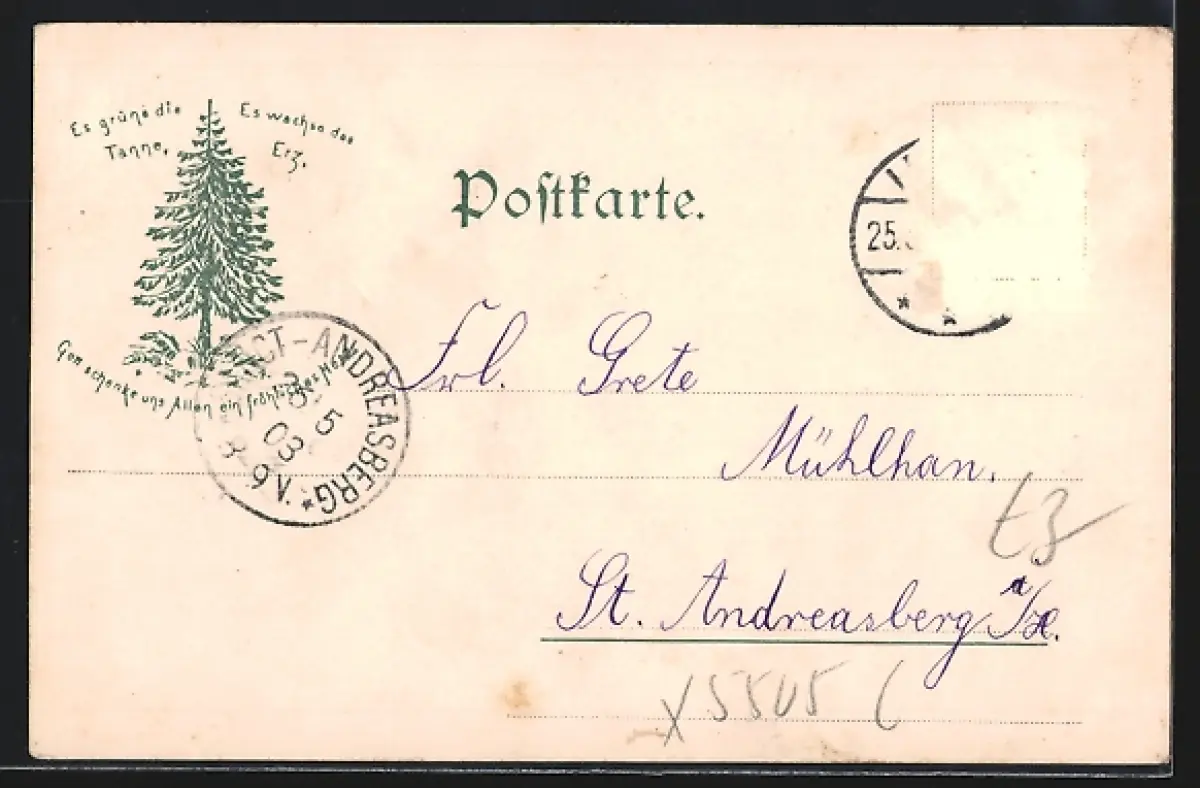 Es grüne die Tanne,
Es wachse das Erz,
Gott schenke uns Allen ein fröhliches
Postkarte.
25.
SCT-ANDREASBERG
5
03
9V.
Frl. Grete
Mühlhan.
St. Andreasberg a/H.
X 5505